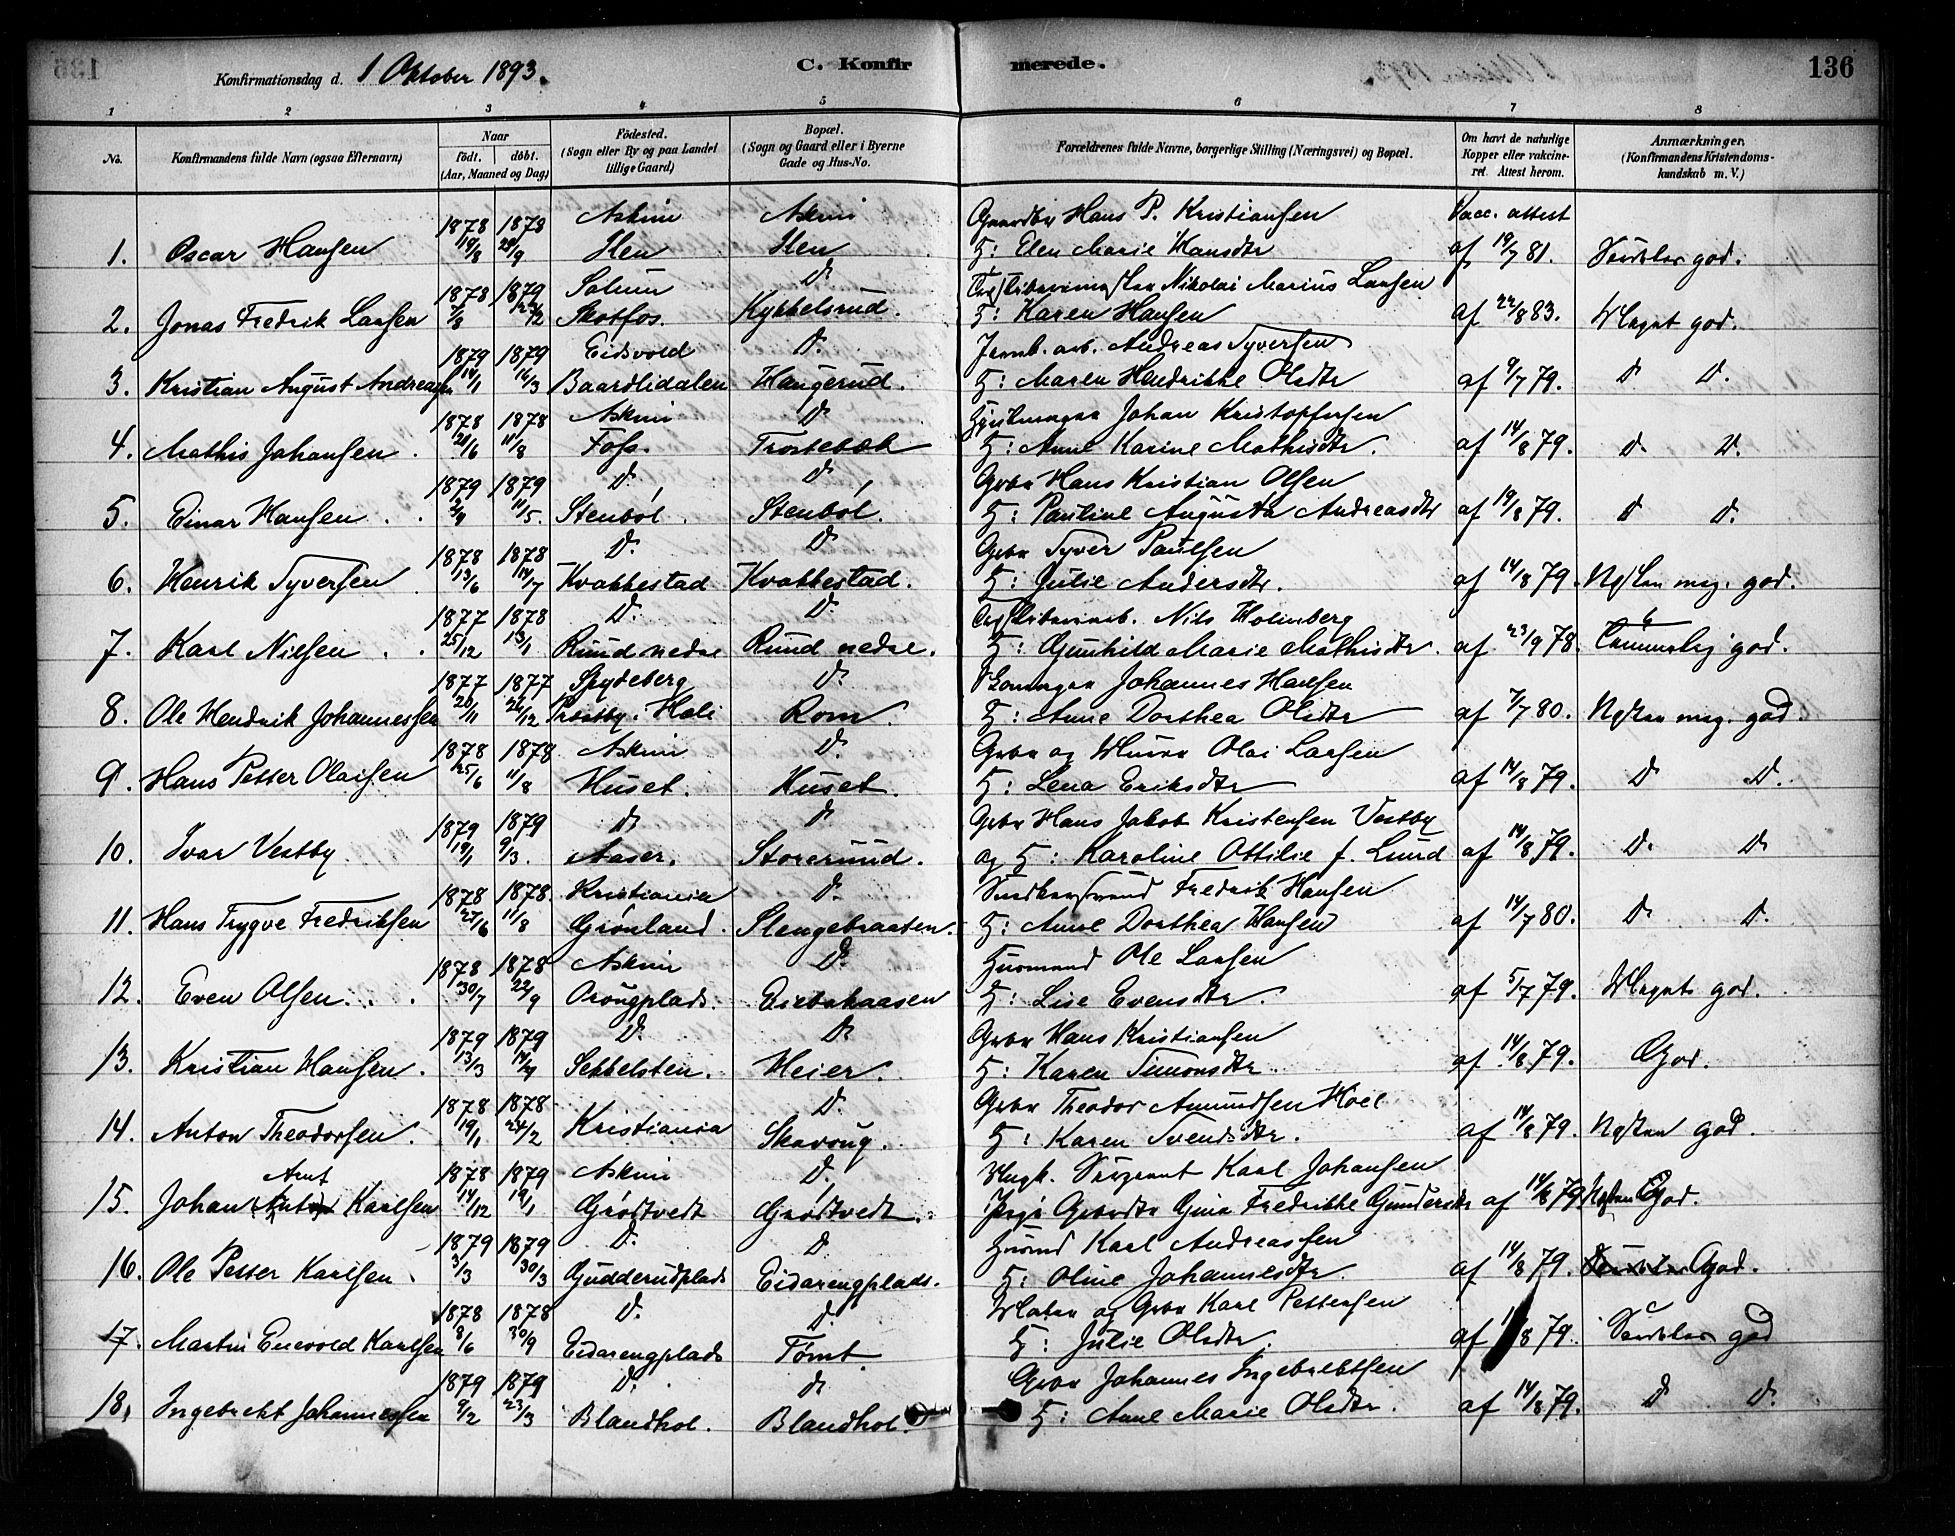 136
Konfirmationsdag d. 1 Oktober 1893.
C. Konfirmerede.
1 2 3 4 5 6 7 8
No. | Konfirmandens fulde Navn (ogsaa Efternavn) | Naar födt. döbt. (Aar, Maaned og Dag) | Födested. (Sogn eller By og paa Landet tillige Gaard) | Bopæl. (Sogn og Gaard eller i Byerne Gade og Hus-No. | Forældrenes fulde Navne, borgerlige Stilling (Næringsvei) og Bopæl. | Om havt de naturlige Kopper eller vakcineret. Attest herom. | Anmærkninger. (Konfirmandens Kristendomskundskab m. V.)
1878 1878 Askim Askim Gaardbr Hans P. Kristiansen Vacc. attest
1. Oscar Hansen 19/8 29/9 Hen Hen H: Elen Marie Hansdtr af 19/7 81. Særdeles god.
1878 1879 Solum D. Nikolai Marius Larsen
2. Jonas Fredrik Larsen Skotfos. Kykkelsrud. H: Karen Hansen af 22/8 83. Meget god.
1879 1879 Eidsvold D. Jernb. arb. Andreas Syversen
3. Kristian August Andreasen 14/1 16/3 Baardlidalen Haugerud. H: Maren Hendrikke Olsdtr af 9/7 79. D D.
1878 1878 Askim D Hjulmager Johan Kristoffersen
4. Mathis Johansen. 21/6 11/8 Foss. Trostebæk H: Anne Karine Mathisdtr. af 14/8 79. D. D.
1879 1879 D. D Gbr Hans Kristian Olsen
5. Einar Hansen . . 2/4 11/5. Stenböl. Stenböl. H: Pauline Augusta Andreasdtr af 19/8 79. D D.
1878 1878 D. D Gbr Syver Paulsen
6. Henrik Syversen 13/6 14/7 Kvakkestad Kvakkestad. H: Julie Andersdtr. af 14/8 79. Næsten meg. god.
1877 1878 D. D. Nils Holmberg
7. Karl Nielsen . . 25/12 13/1 Ruud nedre Ruud nedre. H: Gunhild Marie Mathisdtr. af 23/9 78. god.
1877 1877 Spydeberg D. Johannes Hansen
8. Ole Hendrik Johannessen 20/11 26/12 Hali Rom. H: Anne Dorthea Olsdtr af 7/7 80. Næsten meg. god.
1878 1878 Askim D. Gbr og Murer Olai Larsen
9. Hans Petter Olaisen 25/6 11/8 Huset. Huset. H: Lena Eriksdtr af 14/8 79. D D.
1879 1879 D D Gbr Hans Jakob Kristensen Vestby
10. Ivar Vestby 19/1 9/3. Aaser. Storerud. og H: Karoline Ottilie f. Lund af 14/8 79. D. D
1878 1878. Kristiania D. Fredrik Hansen
11. Hans Trygve Fredriksen 27/6 11/8 Grönland. Slengebraaten. H: Anne Dorthea Hansen af 14/7 80. D D.
1878 1878 Askim D. Husmand Ole Larsen
12. Even Olsen. . . 30/7 22/9 Ovougplads. H: Lise Evensdtr. af 5/7 79. Meget god.
1879 1879 D. D Gbr Hans Kristiansen
13. Kristian Hansen. 13/3 14/4 Sekkelsten. Heier. H: Karen Simonsdtr. af 14/8 79. God.
1878 1878 D. Gbr Theodor Amundsen Hoel
14. Anton Theodorsen. 19/1 24/2 Kristiania Skavoug. H: Karen Svendsdtr. af 14/8 79. Næsten god.
Arnt 1878 1879 Askim D. Ungk. Sergeant Karl Johansen
15. Johan Anton Karlsen 14/12 19/1 Grödtvedt Grödtvedt. Pige Gbrdtr Gina Fredrikke Gundersdtr af 14/8 79 Næsten God.
1879 1879 D. D Husmd Karl Andreassen
16. Ole Petter Karlsen. 3/3 30/3 Gudderudplads Eidarengplads. H: Oline Johannesdtr. af 14/8 79. Særdeles God.
1878 1878 D. D. Maler og Gbr Karl Pettersen
17. Martin Enevold Karlsen 8/6 30/9 Eidarengplads Tömt. H: Julie Olsdtr. af /8 79. Særdeles god
1879 1879 D. D Gbr Johannes Ingebrektsen
18. Ingebrekt Johannessen 9/2 23/3 Blandhol. Blandhol. H: Anne Marie Olsdtr. af 14/8 79. D D.